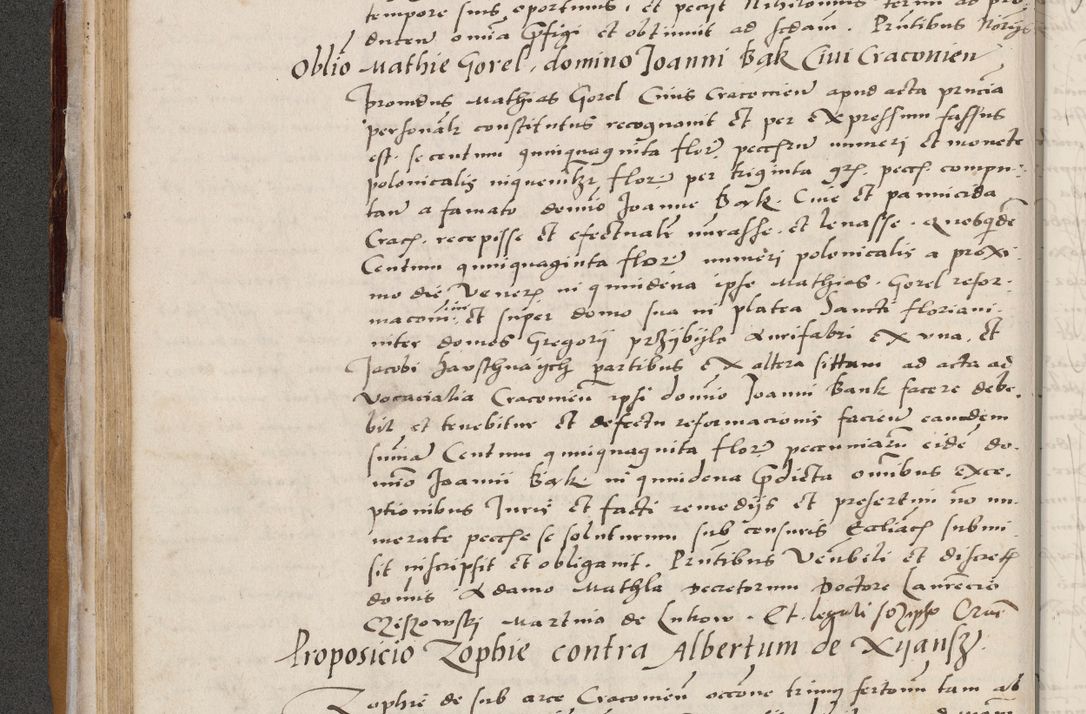 tempore suis oportunis, et petijt Nihilominus termi ad pro
ducen omia pfigi et obtinuit ad scdam. Pntibus Norijs
Oblio Mathie Gorel, domino Joanni Bak Ciui Craconien
Prouidus Mathias Gorel Ciuis Cracouien apud acta pncia
personalr constitutus recognouit et per expressum fassus
est. se centum quinquaginta flor. pecche numeri et monete
polonicalis in quemltr flor. per triginta grs. pecch. compu-
tan a famato domio Joanne Bak. Ciue et pannicida
Crach. recepisse et efectualr leuasse. Quosqde
Centum quinquaginta flor numeri polonicalis a proxi-
mo die Veneris in quindena ipse Mathias Gorel refor-
macom et super domo sua in platea Sancti Floriani.
inter domos Gregorij przijbijlo Aurifabri ex una, et
Jacobi partibus ex altera sittam ad acta ad
vocacialia Cracouien ipsi domio Joanni Bank facere debe.
bit et tenebitur et defectu reformacionis faciend eandem
summa Centum quinquaginta flor peccuniaru eide do-
mio Joanni Bak in quindena pdicta omibus exce.
ptionibus Juris et facti remedijs et presertim no nu-
merate pecche se soluturum sub censuris Eccliach submi
sit inscripsit et obligauit. Pntibus Venbeli et discretis
domis Adamo Mathla Decretorum Doctore Laurencio
Czijzowskj Martino de Lukow. Et
Proposicio Zophie contra Albertum de Xijansz.
Zophie de sub arce Cracouien occone trium fertonu tam ab